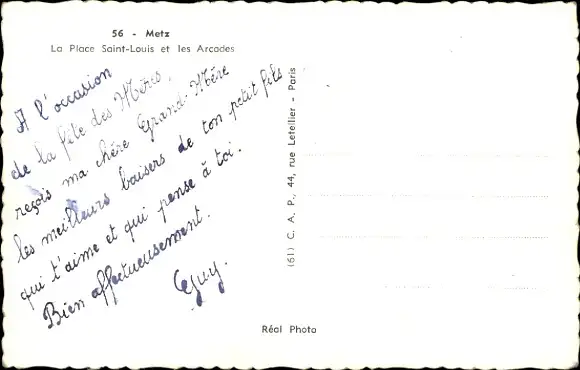 56 - Metz
La Place Saint-Louis et les Arcades
A l'occasion
de la fête des Mères,
reçois ma chère Grand-Mère
les meilleurs baisers de ton petit fils
qui t'aime et qui pense à toi.
Bien affectueusement.
Guy.
(61) C. A. P., 44, rue Letellier - Paris
Réal Photo